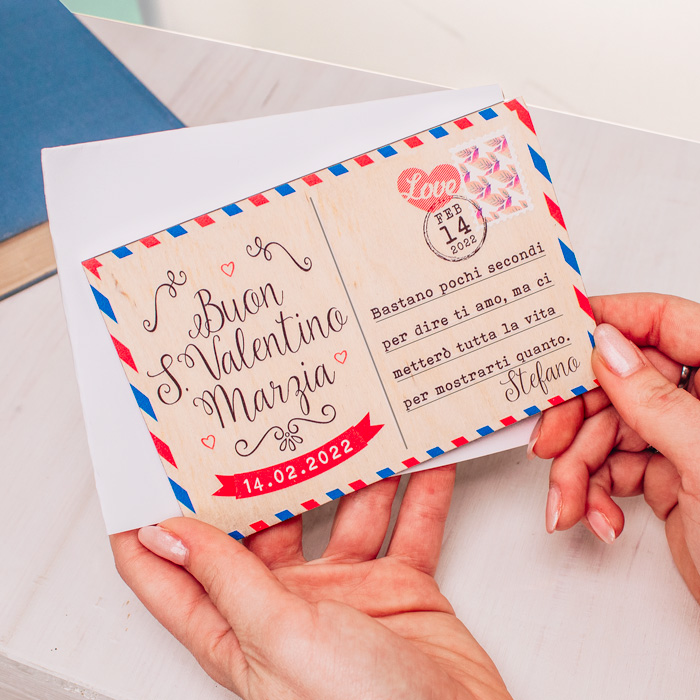 Buon
S. Valentino
Marzia
14.02.2022
Love
FEB
14
2022
Bastano pochi secondi
per dire ti amo, ma ci
metterò tutta la vita
per mostrarti quanto.
Stefano